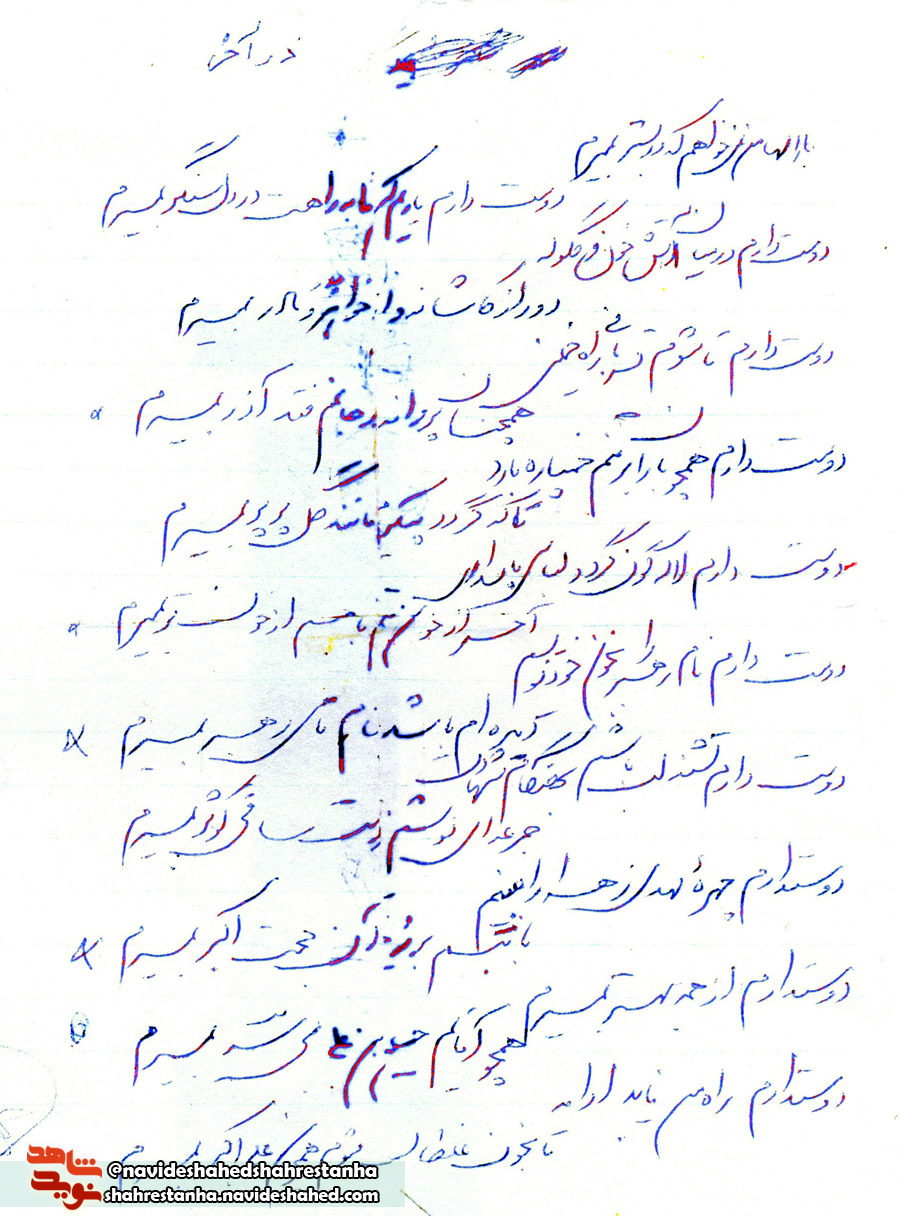 در آخر
بار الها من نمی‌خواهم که در بستر بمیرم
دوست دارم یاریم کن تا به راهت در دل سنگر بمیرم
دوست دارم در میان آتش خون و گلوله
دور از کاشانه و از خواهر و مادر بمیرم
دوست دارم تا شوم قربانی راه خمینی
همچنان پروانه بر جانم فتد آذر بمیرم
دوست دارم همچو باران بر تنم خمپاره بارد
تا که گردد پیکرم مانند گل پرپر بمیرم
دوست دارم لاله گون گردد لباس پاسداری
آخر از خون تنم با جسم از خون تر بمیرم
دوست دارم نام رهبر را بخون خود نویسم
دیده ام باشد بنام نامی رهبر بمیرم
دوست دارم تشنه لب باشم بهنگام شهادت
جرعه ای نوشم ز دست ساقی کوثر بمیرم
دوستدارم چهرهٔ مهدی زهرا را ببینم
با تبسم بر رخ آن حجت اکبر بمیرم
دوستدارم از همه بهتر بمیرم
همچو آقایم حسین بن علی بی سر بمیرم
دوستدارم راه من یابد ادامه
تا بخون غلطان شوم همچون علی اکبر بمیرم
شاهد
نوید
@navideshahedshahrestanha
shahrestanha.navideshahed.com